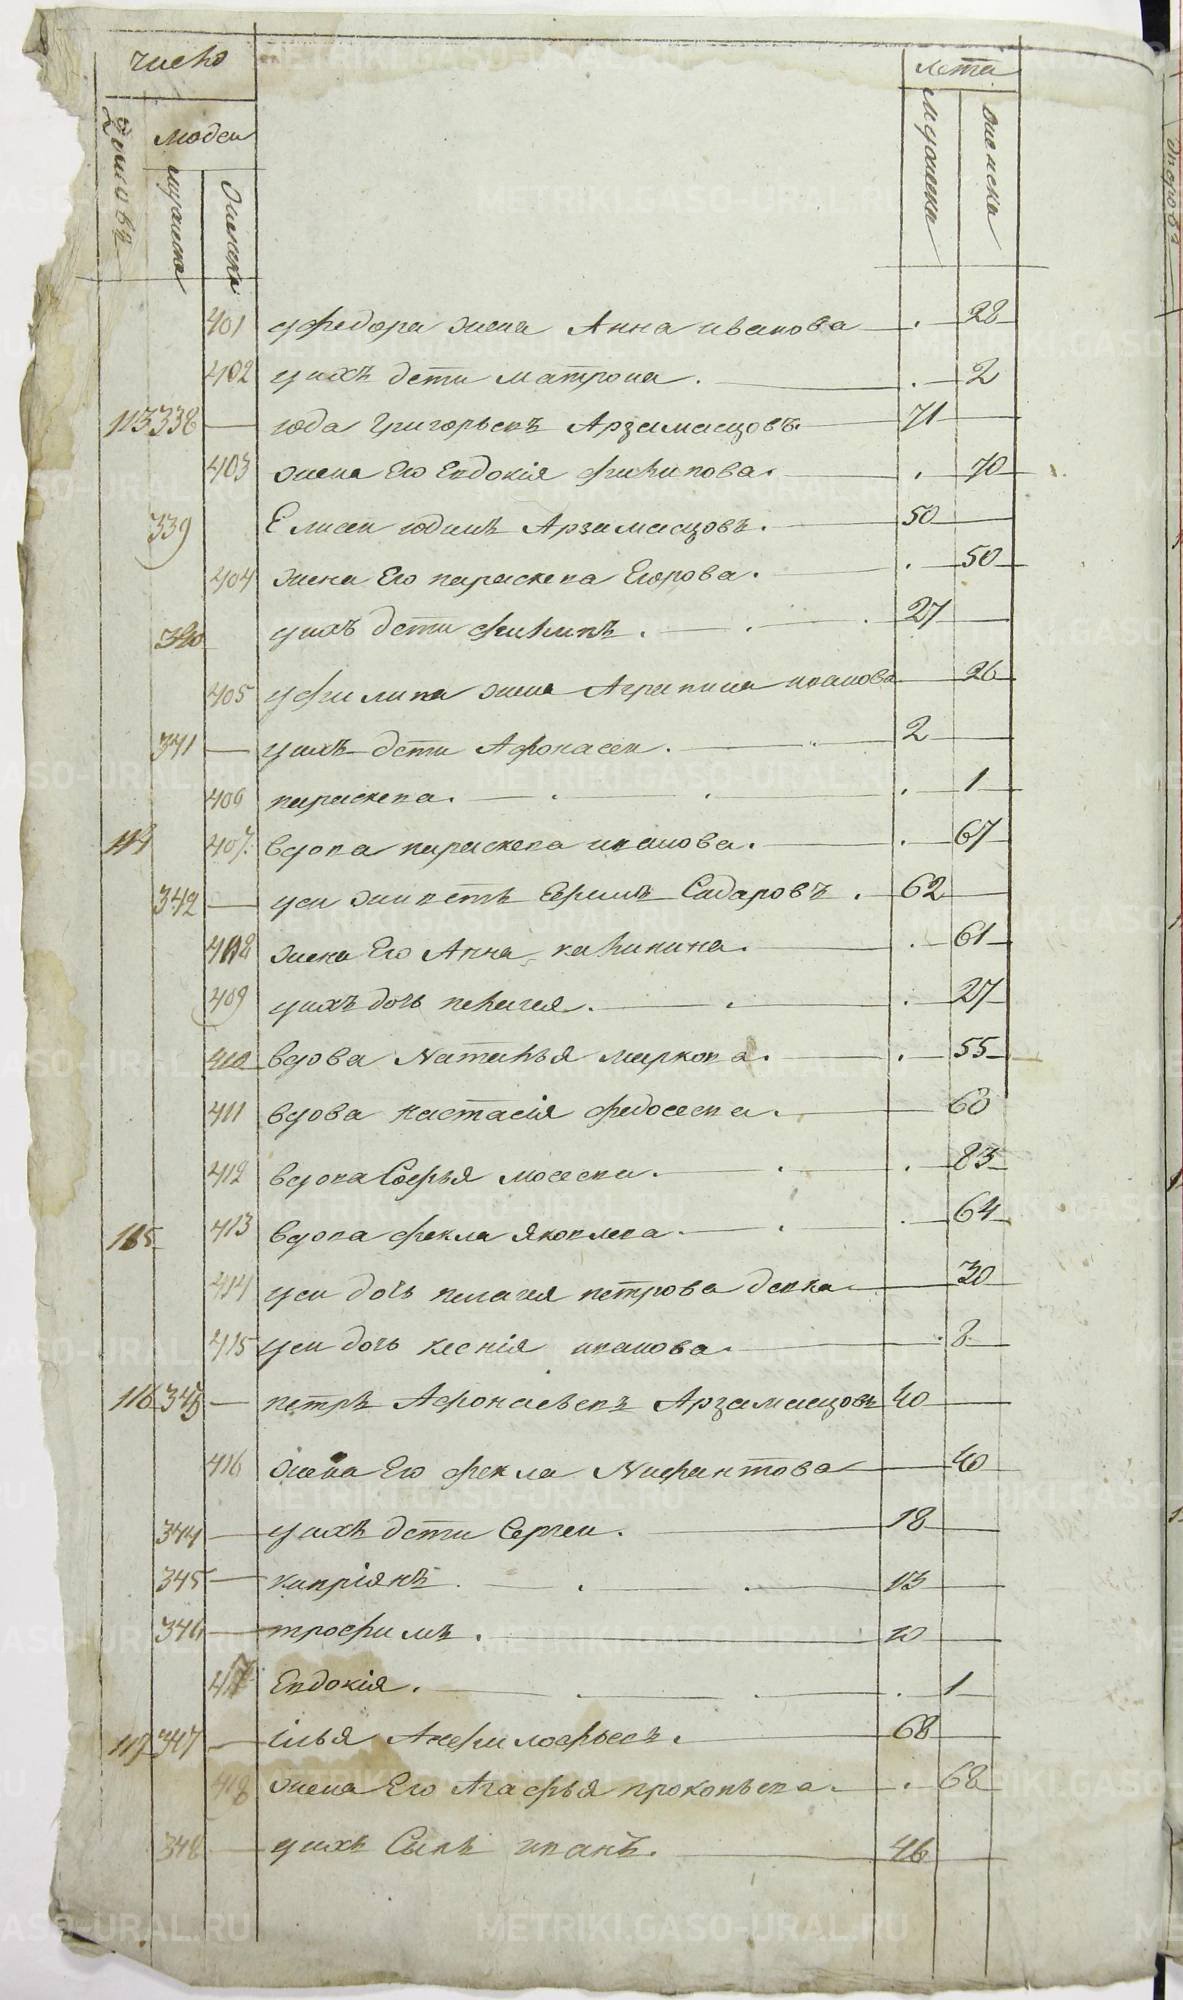 число
лета
домовъ
людеи
мужеска
женска
мужеска
женска
401 уфедора жена Анна иванова . 28
402 унихъ дети матрона . 2
113 338 иода Григорьевъ Арзамасцовъ 71
403 жена Его Евдокія филипова . 70
339 Елисеи иодинъ Арзамасцовъ . 50
404 жена Его параскева Егорова . 50
340 унихъ дети филипъ . 27
405 уфилипа жена Агрипина иванова 26
341 унихъ дети Афонасеи . 2
406 параскева . 1
114 407 вдова параскева иванова . 67
342 уеи живетъ Ефимъ Сидаровъ . 62
408 жена Его Анна калинина . 61
409 унихъ дочь пелагея . 27
410 вдова Наталья маркова . 55
411 вдова настасія федосеева . 60
412 вдова Софья мосеева . 83
115 413 вдова фекла яковлева . 64
414 уеи дочь пелагея петрова девка 30
415 уеи дочь ксенія иванова . 8
116 343 петръ Афонасьевъ Арзамасцовъ 40
416 жена Его фекла Нифантова 40
344 унихъ дети Сергеи . 18
345 кипріянъ . 13
346 трофимъ . 10
417 Евдокія . 1
117 347 илья Анфилофьевъ . 68
418 жена Его Агафья прокопьева . 68
348 унихъ Сынъ иванъ . 46
METRIKI.GASO-URAL.RU